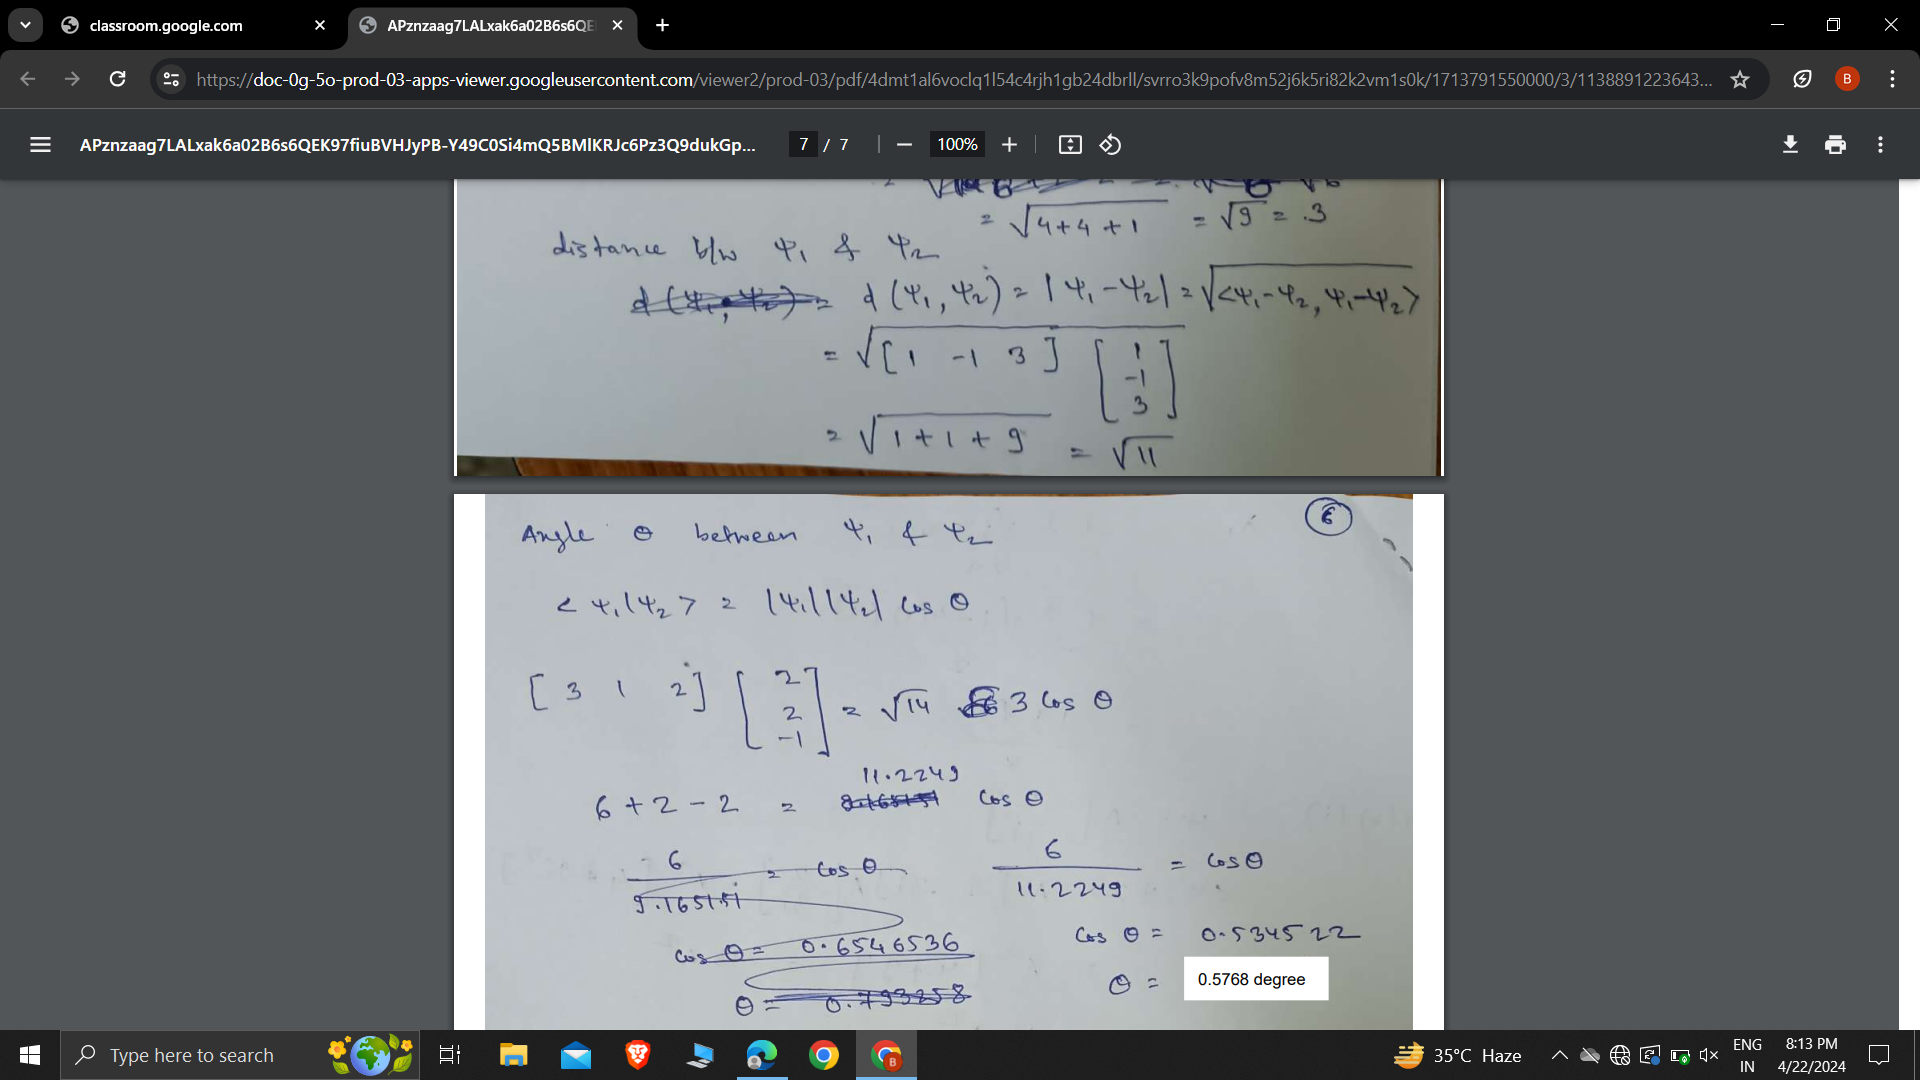 classroom.google.com
APznzaag7LALxak6a02B6s6QE
https://doc-0g-5o-prod-03-apps-viewer.googleusercontent.com/viewer2/prod-03/pdf/4dmt1al6voclq1l54c4rjh1gb24dbrll/svrro3k9pofv8m52j6k5ri82k2vm1s0k/1713791550000/3/1138891223643...
B
APznzaag7LALxak6a02B6s6QEK97fiuBVHJyPB-Y49C0Si4mQ5BMlKRJc6Pz3Q9dukGp...
7 / 7
100%
= √4+4+1 = √9 = 3
distance b/w Ψ1 & Ψ2
d (Ψ1, Ψ2) = d (Ψ1, Ψ2) = |Ψ1-Ψ2| = √<Ψ1-Ψ2, Ψ1-Ψ2>
= √[1 -1 3] [1
-1
3]
= √1+1+9 = √11
6
Angle θ between Ψ1 & Ψ2
<Ψ1|Ψ2> = |Ψ1||Ψ2| cos θ
[3 1 2] [2
2
-1] = √14 3 cos θ
11.2249
6+2-2 = cos θ
6 = cos θ
9.165151
cos θ = 0.6546536
θ = 0.793258
6 = cos θ
11.2249
cos θ = 0.534522
θ = 0.5768 degree
Type here to search
35°C Haze
ENG
IN
8:13 PM
4/22/2024